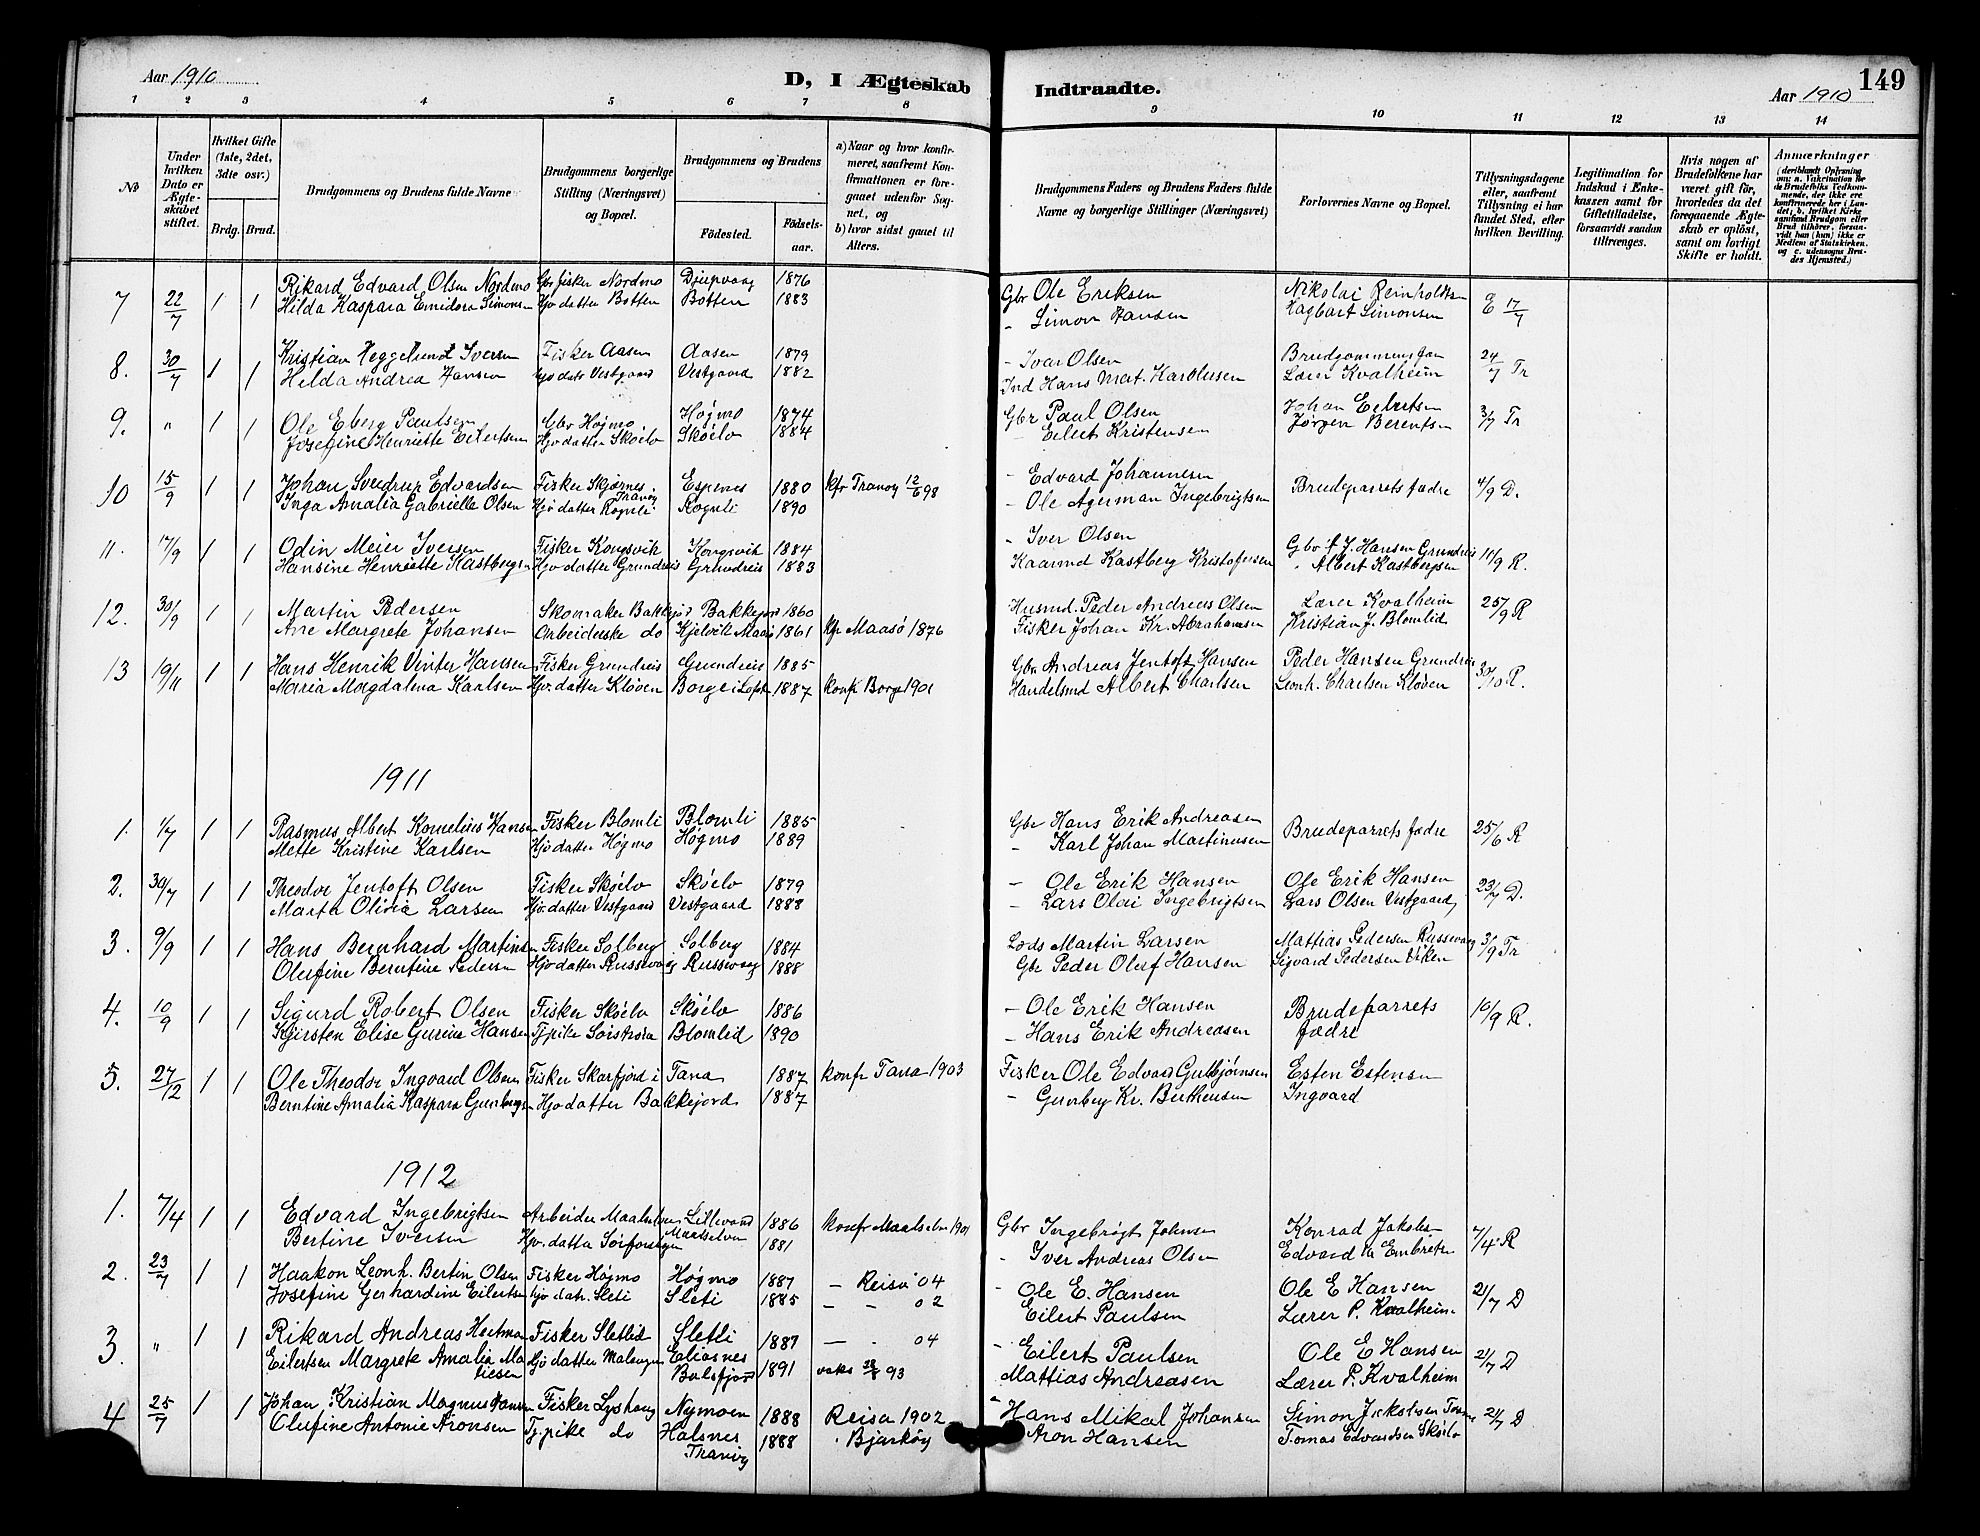 Aar 1910
D, I Ægteskab Indtraadte.
Aar 1910
149
1 2 3 4 5 6 7 8 9 10 11 12 13 14
No
Under hvilken Dato er Ægteskabet stiftet.
Hvilket Gifte (1ste, 2det, 3die osv.)
Brdg. Brud.
Brudgommens og Brudens fulde Navne
Brudgommens borgerlige Stilling (Næringsvei) og Bopæl.
Brudgommens og Brudens
Fødested. Fødselsaar.
a) Naar og hvor konfirmeret, saafremt Konfirmationen er foregaaet udenfor Sognet, og
b) hvor sidst gaaet til Alters.
Brudgommens Faders og Brudens Faders fulde Navne og borgerlige Stillinger (Næringsvei)
Forlovernes Navne og Bopæl.
Tillysningsdagene eller, saafremt Tillysning ei har fundet Sted, efter hvilken Bevilling.
Legitimation for Indskud i Enkekassen samt for Giftetilladelse, forsaavidt saadan tiltrænges.
Hvis nogen af Brudefolkene har været gift før, hvorledes da det foregaaende Ægteskab er opløst, samt om lovligt Skifte er holdt.
Anmærkninger
(deriblandt Oplysning om: a. Vakcination for de Brudefolks Vedkommende, der ikke ere konfirmerede her i Landet, b. hvilket Kirkesamfund Brudgom eller Brud tilhører, forsaavidt han (hun) ikke er Medlem af Statskirken, og c. udensogns Brudes Hjemsted.)
7 22/7 1 1 Rikard Edvard Olsen Nordmo Gbr fisker Nordmo Djupvaag 1876 Gbr Ole Eriksen Nikolai Reinholdtsen E 17/7
Hilda Kaspara Emidora Simonsen Hjo datter Botten Botten 1883 - Simon Hansen Hagbart Simonsen
8. 30/7 1 1 Kristian Heggelund Iversen Fisker Aasen Aasen 1879 - Ivar Olsen Brudgommens far 24/7 Tr
Hilda Andrea Hansen Hjo datr Vestgaard Vestgaard 1882 Ind Hans Mat. Karolusen Lærer Kvalheim
9. " 1 1 Ole Eberg Paulsen Gbr Høgmo Høgmo 1874 Gbr Paul Olsen Johan Eilertsen 3/7 Tr
Josefine Henriette Eilertsen Hjo datter Skóelv Skóelv 1884 - Eilert Kristensen Jørgen Berentsen
10 15/9 1 1 Johan Sverdrup Edvardsen Fisker Skjærnes Tranøy Espenes 1880 kfr Tranøy 12/6 98 - Edvard Johannesen Brudeparrets fædre 4/9 D.
Inga Amalia Gabrielle Olsen Hjo datter Rognli Rognli 1890 - Ole Agerman Ingebrigtsen
11. 17/9 1 1 Odin Meier Iversen Fisker Kongsvik Kongsvik 1884 - Iver Olsen Gbr J. Hansen Grundreis 11/9 R.
Hansine Henriette Kastbergsen Hjo datter Grundreis Grundreis 1883 Kaarmd Kastberg Kristofersen " Albert Kastbergsen
12. 30/9 1 1 Martin Pedersen Skomaker Bakkejord Bakkejord 1860 Husmd. Peder Andreas Olsen Lærer Kvalheim 25/9 R
Ane Margrete Johansen Arbeiderske do Kjelvik Maasø 1861 kfr Maasö 1876 Fisker Johan Kr. Abrahamsen Kristian J. Blomlid
13 19/11 1 1 Hans Henrik Vinter Hansen Fisker Grundreis Grundreis 1885 Gbr Andreas Jentoft Hansen Peder Hansen Grundreis 30/10 R.
Maria Magdalena Karlsen Hjo. datter Kløven Borge i Lofot 1887 konf Borge 1901 Handelsmd Albert Charlsen Leonh. Charlsen Kløven
1911
1. 1/7 1 1 Rasmus Albert Kornelius Hansen Fisker Blomli Blomli 1885 Gbr Hans Erik Andreasen Brudeparrets fædre 25/6 R
Mette Kristine Karlsen Hjo datter Høgmo Høgmo 1889 - Karl Johan Martinusen
2. 30/7 1 1 Theodor Jentoft Olsen Fisker Skóelv Skóelv 1879 - Ole Erik Hansen Ole Erik Hansen 23/7 D.
Marta Olivia Larsen Hjo. datter Vestgaard Vestgaard 1888 - Lars Olai Ingebrigtsen Lars Olsen Vestgaard
3. 9/9 1 1 Hans Bernhard Martinsen Fisker Solberg Solberg 1884 Lods Martin Larsen Mattias Pedersen Russevaag 3/9 Tr
Olufine Berntine Pedersen Hjo datter Russevaag Russevaag 1888 Gbr Peder Oluf Hansen Sigvard Pedersen Viken
4. 10/9 1 1 Sigurd Robert Olsen Fisker Skóelv Skóelv 1886 - Ole Erik Hansen Brudeparrets 10/9 R.
Kjirsten Elise Gurine Hansen Tj pike Sorstroen Blomlid 1890 - Hans Erik Andreasen fædre
5. 27/12 1 1 Ole Theodor Ingvard Olsen Fisker Skarfjord i Tana 1887 konfr Tana 1903 Fisker Ole Edvard Gulbjørnsen Esten Estensen
Berntine Amalia Kaspara Gunbergsen Hjo datter Bakkejord 1887 - Gunberg Kr. Berthensen Ingvard
1912
1. 7/4 1 1 Edvard Ingebrigtsen Arbeider Maalselven Lillevand Maalselven 1886 konfr Maalselven 1901 Gbr Ingebrigt Johnsen Konrad Jakobsen 7/4 R
Bertine Iversen Hjo. datter Sørforsagen 1881 - Iver Andreas Olsen Edvard Embretsen
2. 23/7 1 1 Haakon Leonh. Bertin Olsen Fisker Høgmo Høgmo 1887 - Reisa 04 - Ole E. Hansen Ole E Hansen 21/7 D
Josefine Gerhardine Eilertsen hjo datr. Sleti Sleti 1885 - - 02 Eilert Paulsen Lærer P. Kvalheim.
3. " 1 1 Rikard Andreas Hertman Fisker Sletlid Sletli 1887 - - 04 - Eilert Paulsen Ole E Hansen 21/7 D
Eilertsen Margrete Amalia Matiesen Hjo datter Malangen Eliasnes Balsfjord 1891 vaks 93 Mattias Andreasen Lærer P. Kvalheim
4 25/7 1 1 Johan Kristian Magnus Hansen Fisker Lyshaug Nymoen 1888 Reisa 1902 - Hans Mikal Johansen Simon Jakobsen 21/7 D
Olufine Antonie Aronsen Tj. pike do Halsnes Tranøy 1888 . Bjarkøy Aron Hansen Tomas Edvardsen Skóelv